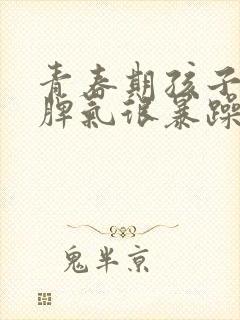 青春期孩子
脾气很暴躁
鬼半京